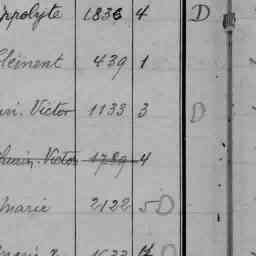 ippolyte 1836 4 D
Clément 439 1
ri. Victor 1133 3 D
Victor 1789 4
Marie 2122 5 D